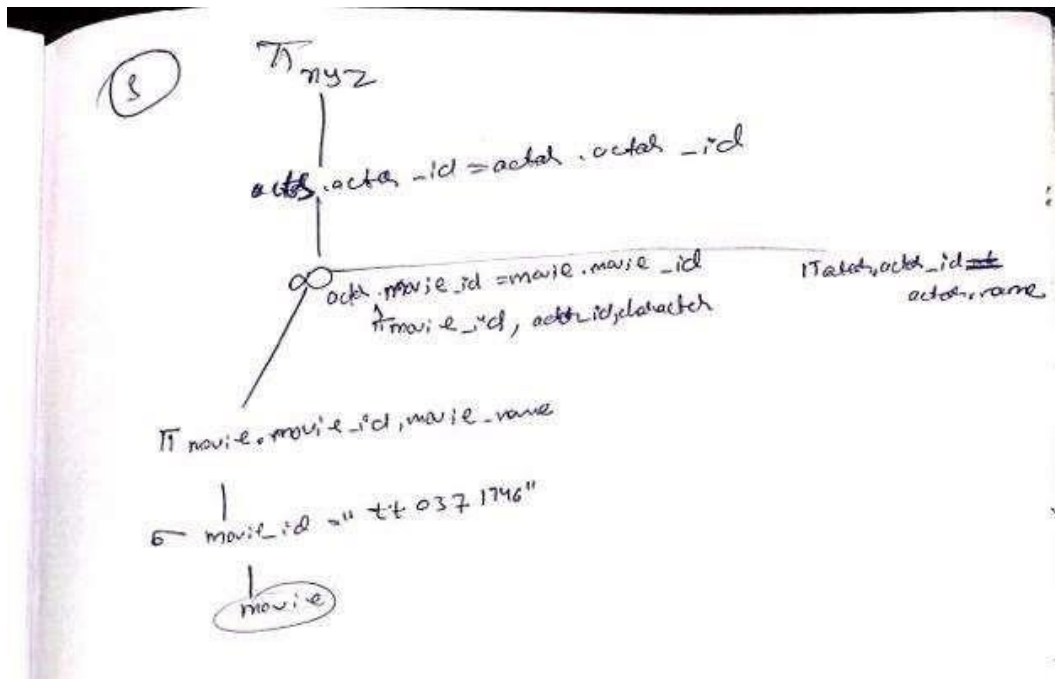 3
π xyz
actor.actor_id = actor.actor_id
∞ actor.movie_id = movie.movie_id
π movie_id, actor_id, character
π actor, actor_id
actor.name
π movie.movie_id, movie_name
σ movie_id = "tt 0371746"
movie